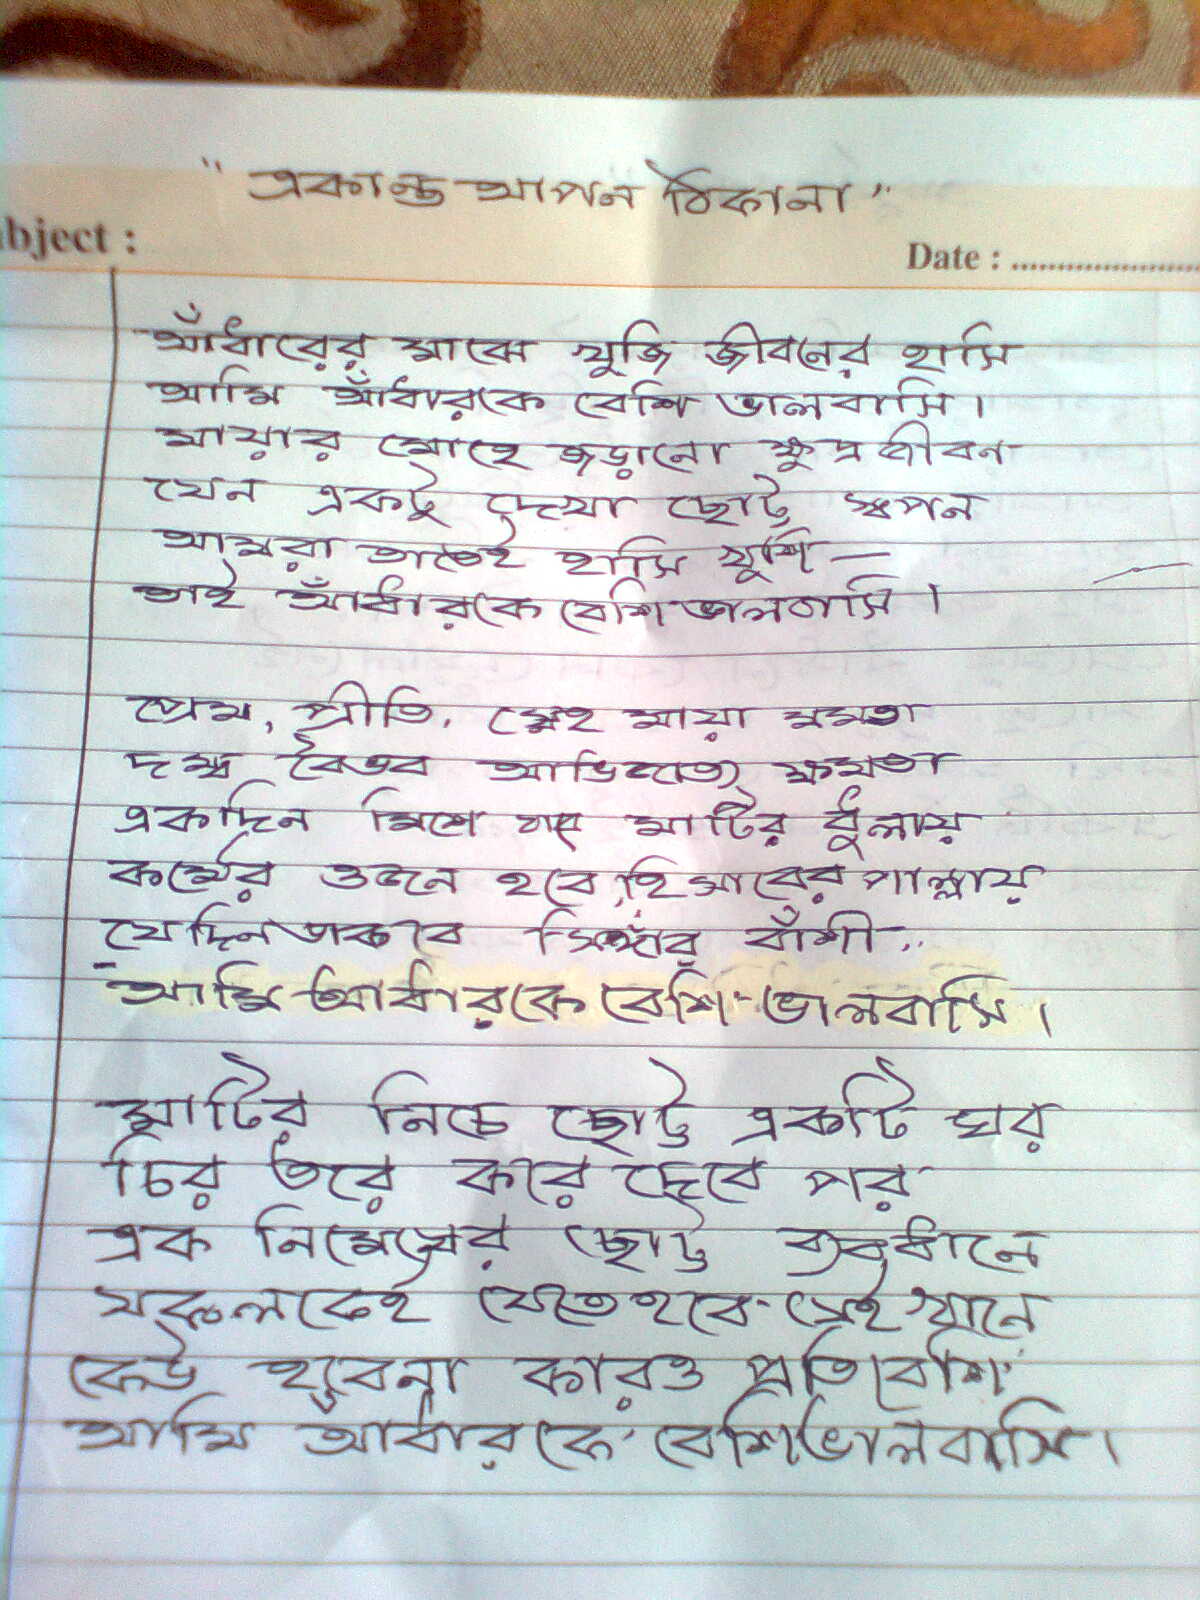 "একান্ত আপন ঠিকানা"
bject :
Date : ......................
আঁধারের মাঝে খুজি জীবনের হাসি
আমি আঁধারকে বেশি ভালবাসি।
মায়ার মোহে জড়ানো ক্ষুদ্র জীবন
যেন একটু দেখা ছোট্ট স্বপন
আমরা তাতেই হাসি খুশি —
তাই আঁধারকে বেশি ভালবাসি।
প্রেম, প্রীতি, স্নেহ মায়া মমতা
দম্ভ বৈভব আভিজাত্য ক্ষমতা
একদিন মিশে যাবে মাটির ধুঁলায়
কর্মের ওজন হবে, হিসাবের পাল্লায়
যেদিন ডাকবে সিঙ্গার বাঁশী..
আমি আধাঁরকে বেশি ভালবাসি।
মাটির নিচে ছোট্ট একটি ঘর
চির তরে করে দেবে পর
এক নিমেষের ছোট্ট ব্যবধানে
সকলকেই যেতে হবে সেই খানে
কেউ হবেনা কারও প্রতিবেশি
আমি আধাঁরকে বেশি ভালবাসি।